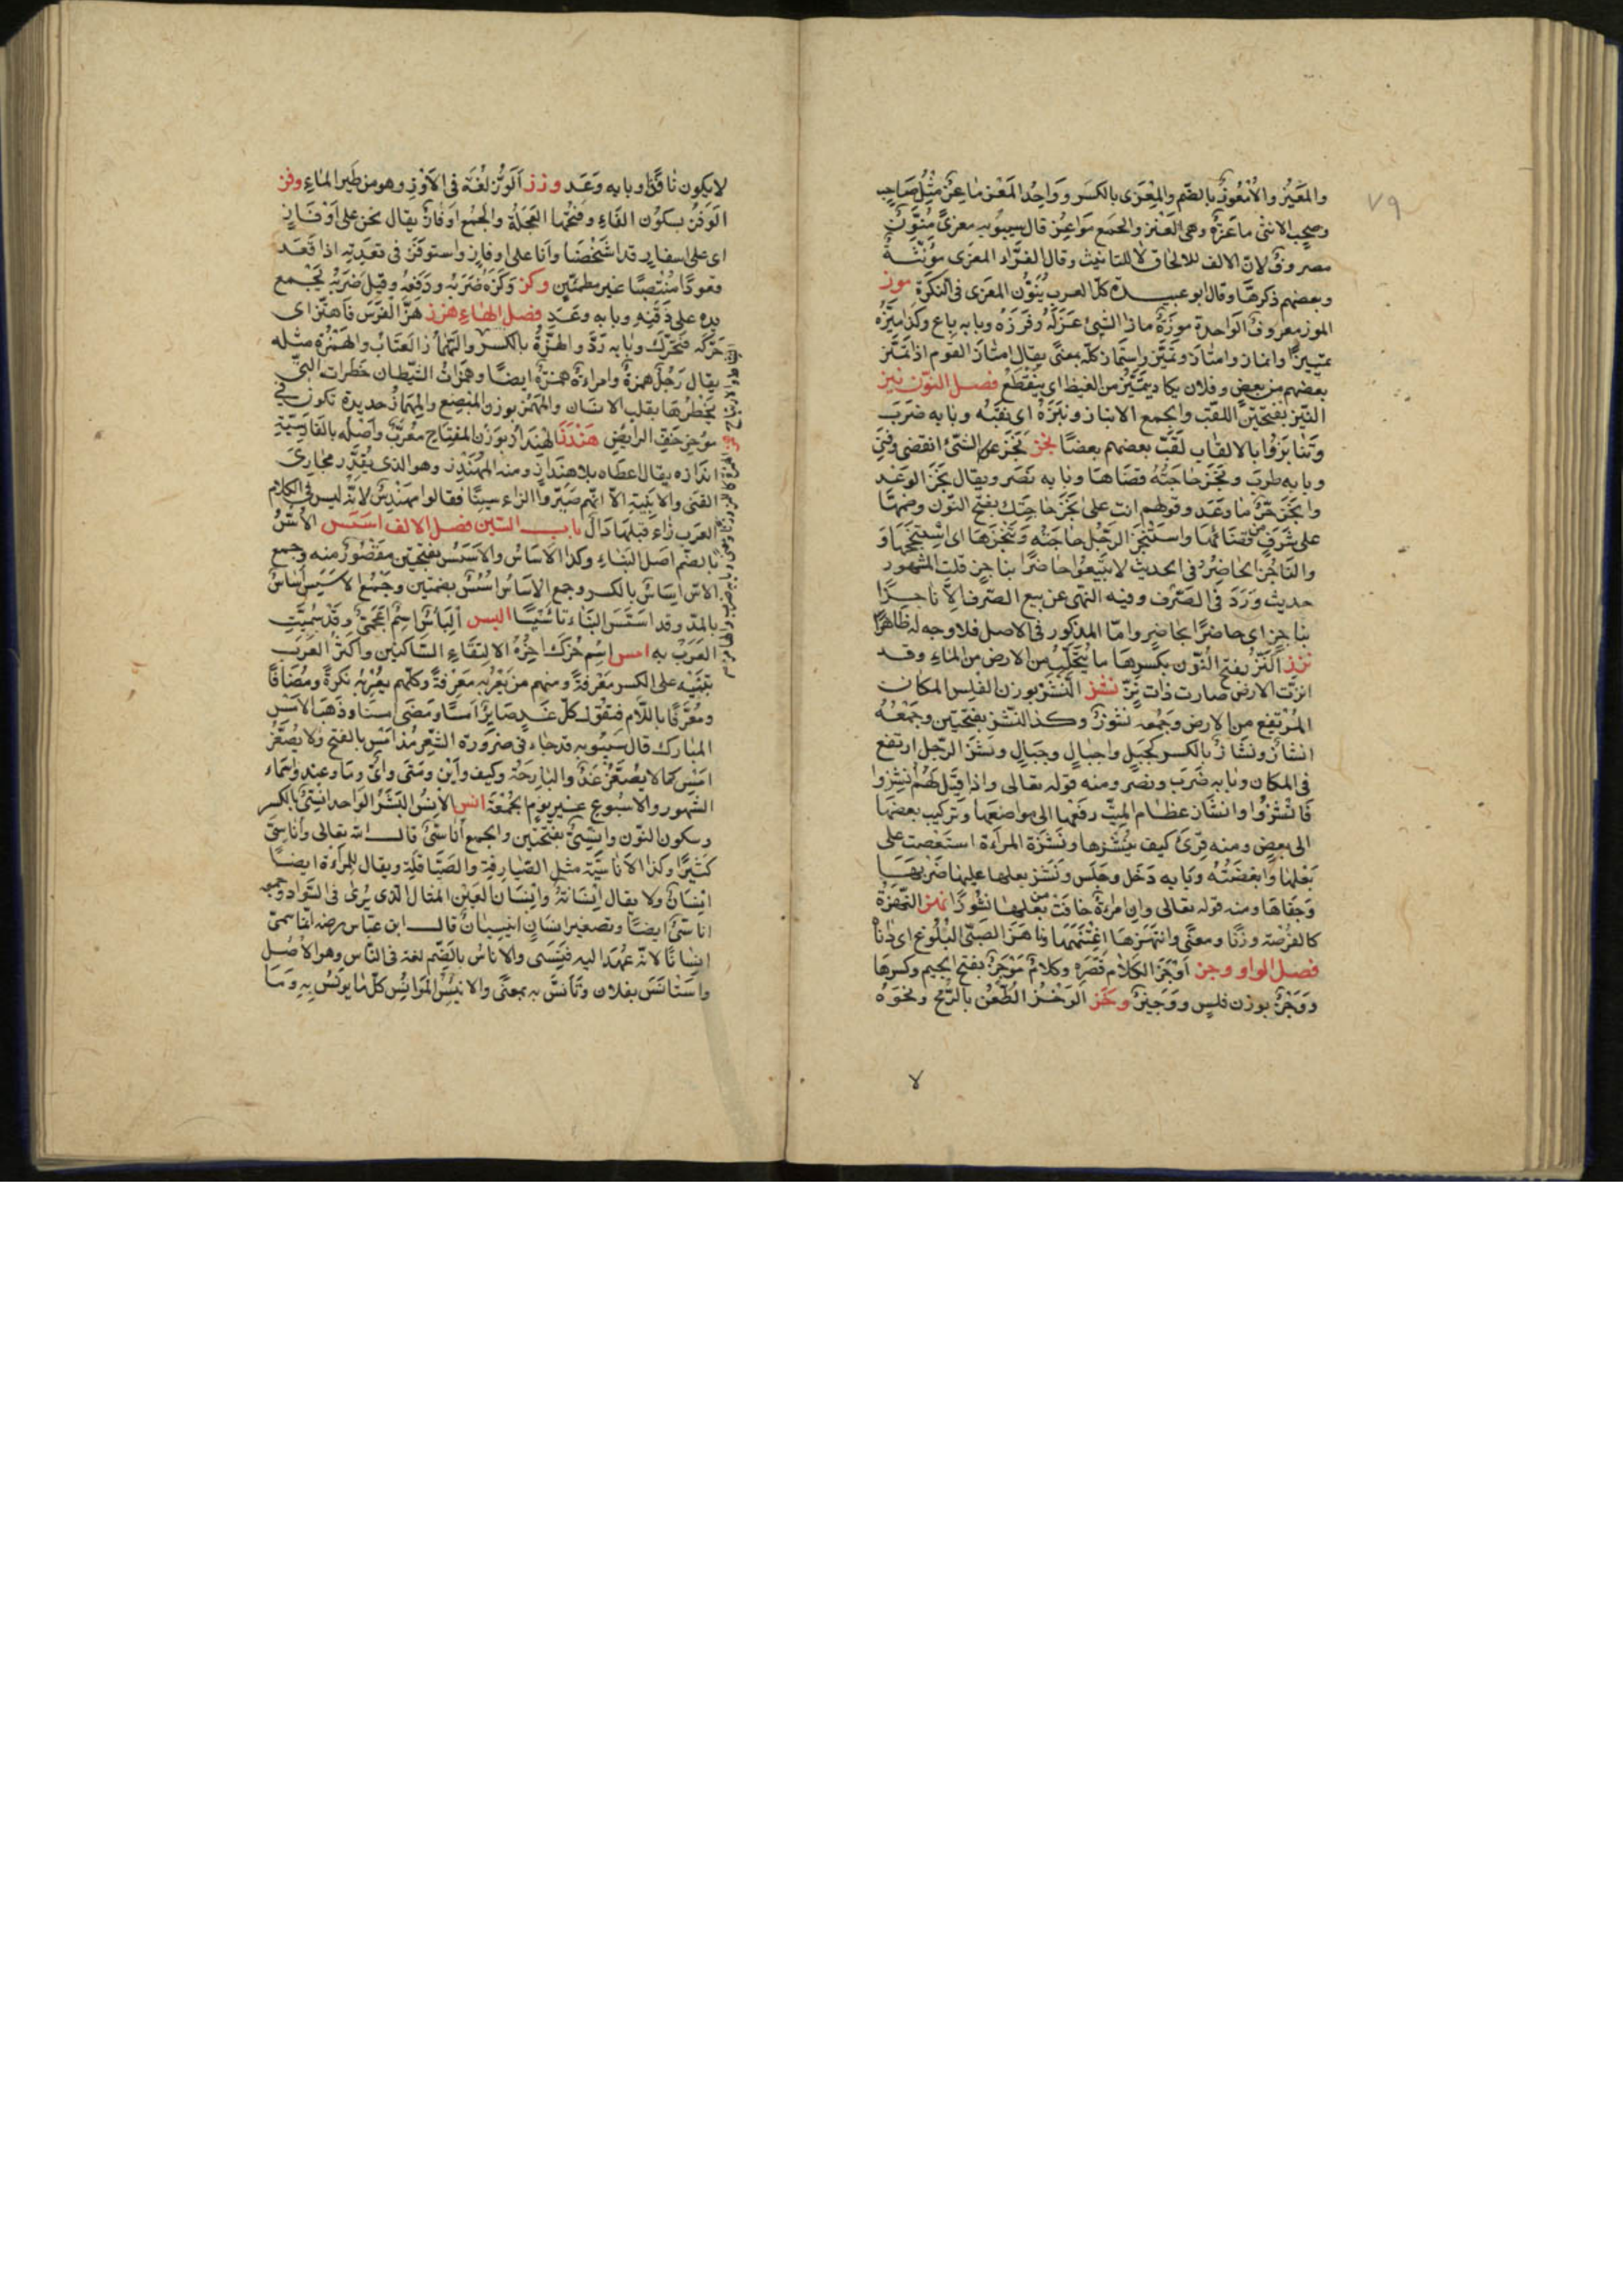 ٧٩
والمَعِيْز والاُمْعُوز بالضّم والمِعْزى بالكسر وواحد المَعْز ماعز مثل صاحب
وصحب والانثى ماعزة وهى العنز والجمع مواعز قال سيبويه معزىً منوّن
مصروف لان الالف للالحاق لا للتانيث وقال الفرّاء المعزى مؤنثة
وبعضهم ذكرها وقال ابو عبيد كلّ العرب ينوّن المعزى فى النكرة موز
الموز معروف الواحدة موزة ماز الشئ عزله وفرزه وبابه باع وكذا ميّزه
تمييزًا وانماز وامتاز وتميّز واستماز كلّه بمعنى يقال امتاز القوم اذا تميّز
بعضهم من بعض وفلان يكاد يتميّز من الغيظ اى يتقطّع فصل النوّن نبز
النّبز بفتحتين اللقب والجمع الانباز ونبزه اى لقبه وبابه ضرب
وتنابزوا بالالقاب لقّب بعضهم بعضًا نجز نجز الشئ انقضى وفنى
وبابه طرب ونجز حاجته قضاها وبابه نصر ويقال نجز الوعد
وانجز حرّ ما وعد وقولهم انت على نجز حاجتك بفتح النوّن وضمها
على شرف من قضائها واستنجز الرجل حاجته وتنجزها اى استنجحها و
والنّاجز الحاضر وفى الحديث لا تبيعوا حاضرًا بناجز قلت المشهور
حديث ورد فى الصّرف وفيه النهى عن بيع الصّرف الّا ناجزًا
بناجز اى حاضرًا بحاضر وامّا المذكور فى الاصل فلا وجه له ظاهرًا
نزز النّزّ بفتح النوّن وبكسرها ما يتحلّب من الارض من الماء وقد
انزّت الارض صارت ذات نزّ نشز النّشز بوزن الفلس المكان
المرتفع من الارض وجمعه نشوز وكذا النّشز بفتحتين وجمعه
انشاز ونشاز بالكسر كجبل واجبال وجبال ونشز الرّجل ارتفع
فى المكان وبابه ضرب ونصر ومنه قوله تعالى واذا قيل لهم انشزوا
فانشزوا وانشاز عظام الميّت رفعها الى مواضعها وتركيب بعضها
الى بعض ومنه قرئ كيف ننشزها ونشزة المراءة استعصت على
بعلها وابغضته وبابه دخل وجلس ونشز بعلها عليها ضربها
وجفاها ومنه قوله تعالى وان امراءة خافت من بعلها نشوزًا نهز النّهزة
كالفرصة وزنًا ومعنى وانتهزها اغتنمها وناهز الصّبى البلوغ اى داناه
فصل الواو وجز اوجز الكلام قصّره وكلام موجز بفتح الجيم وكسرها
ووجز بوزن فلس ووجيز وخز الوخز الطّعن بالرّمح ونحوه
لا
لا يكون نافذًا وبابه وعد وزز الوزّ لغة فى الاوزّ وهو من طير الماء وفز
الوفز بسكون الفاء وفتحها العجلة والجمع اوفاز يقال نحن على اوفاز
اى على اسفار قد اشخصنا وانا على اوفاز واستوفز فى قعدته اذا قعد
قعودًا منتصبًا غير مطمئنّ وكز وكزه ضربه ودفعه وقيل ضربه بجمع
يده على ذقنه وبابه وعد فصل الهاء هزز هزّ الفرس فاهتزّ اى
حرّكه فتحرّك وبابه ردّ والهزّة بالكسر والهمّاز العيّاب والهمزة مثله
يقال رجل همزة وامراءة همزة ايضًا وهمزات الشيطان خطراته التى
يخطرها بقلب الانسان والمهمز بوزن المبضع والمهماز حديدة تكون فى
مؤخر خفّ الرايض هندز الهنداز بوزن المفتاح معرّب واصله بالفارسيّة
اندازه يقال اعطاه بلا هنداز ومنه المهندز وهو الذى يقدّر مجارى
القنى والابنية الّا انهم صيّروا الزاء سينًا فقالوا مهندس لانّه ليس فى الكلام
العرب زاء قبلها دال باب السّين فصل الالف اسس الاُسّ
بالضمّ اصل البناء وكذا الاساس والاسس بفتحتين مقصور منه وجمع
الاسّ اساس بالكسر وجمع الاساس اسس بضمتين وجمع الاسس آساس
بالمدّ وقد اسّس البناء تاسيسًا اليس الياس اسم اعجمىّ وقد سمّت
العرب به امس امس اسم حرّك اخره لالتقاء السّاكنين واكثر العرب
تبنيه على الكسر معرفة ومنهم من يعربه معرفة وكلّهم يعربه نكرة ومضافًا
ومعرّفًا باللّام فتقول كلّ غد صاير امسًا ومضى امسنا وذهب الامس
المبارك قال سيبويه قد جاء فى ضرورة الشّعر مذ امس بالفتح ولا يصغّر
امس كما لا يصغّر غد والبارحة وكيف واين ومتى واىّ وما وعند واسماء
الشهور والاسبوع غير يوم الجمعة انس الانس البشر الواحد انسىّ بالكسر
وسكون النوّن وانسىّ بفتحتين والجمع اناسىّ قال الله تعالى واناسىّ
كثيرًا وكذا الاناسيّة مثل الصّيارفة والصّياقلة ويقال للمراءة ايضًا
انسان ولا يقال انسانة وانسان العين المثال الذى يرى فى السّواد وجمعه
اناسىّ ايضًا وتصغير انسان انيسيان قال ابن عبّاس رضه انّما سمّى
انسانًا لانّه عهد اليه فنسى والاناس بالضّم لغة فى النّاس وهو الاصل
واستانس بفلان وتأنّس به بمعنى والانيس المؤانس كلّ ما يؤنس به وما